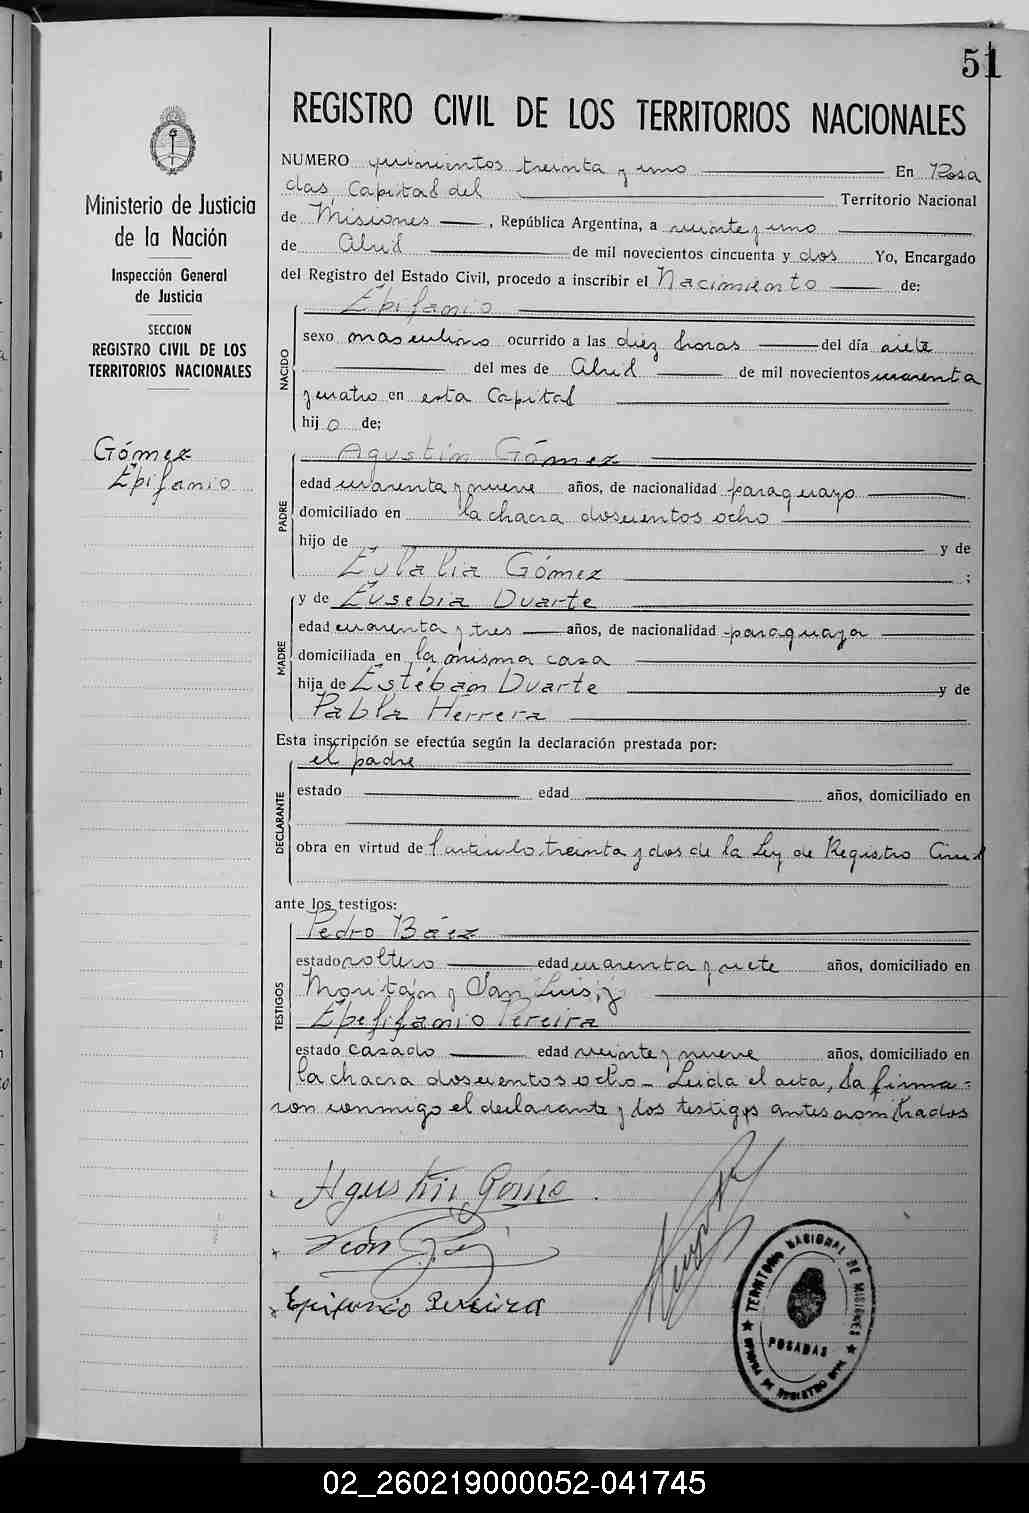 51
REGISTRO CIVIL DE LOS TERRITORIOS NACIONALES
Ministerio de Justicia
de la Nación
Inspección General
de Justicia
SECCION
REGISTRO CIVIL DE LOS
TERRITORIOS NACIONALES
Gómez
Epifanio
NUMERO quinientos treinta y uno En Posa
das, Capital del Territorio Nacional
de Misiones, República Argentina, a veinte y uno
de Abril de mil novecientos cincuenta y dos Yo, Encargado
del Registro del Estado Civil, procedo a inscribir el Nacimiento de:
NACIDO
Epifanio
sexo masculino ocurrido a las diez horas del día siete
del mes de Abril de mil novecientos cuarenta
y cuatro en esta Capital
hijo de;
PADRE
Agustín Gómez
edad cuarenta y nueve años, de nacionalidad paraguayo
domiciliado en la chacra doscientos ocho
hijo de y de
Eulalia Gómez ;
MADRE
y de Eusebia Duarte
edad cuarenta y tres años, de nacionalidad paraguaya
domiciliada en la misma casa
hija de Estéban Duarte y de
Pabla Herrera
Esta inscripción se efectúa según la declaración prestada por:
DECLARANTE
el padre
estado edad años, domiciliado en
obra en virtud de l'artículo treinta y dos de la Ley de Registro Civil
ante los testigos:
TESTIGOS
Pedro Báez
estado soltero edad cuarenta y siete años, domiciliado en
Moritán y San Luis, y
Epefifanio Pereira
estado casado edad veinte y nueve años, domiciliado en
la chacra doscientos ocho - Leida el acta, la firma=
ron conmigo el declarante y los testigos antes nombrados
Agustin Gome
Epifanio Pereira
TERRITORIO NACIONAL DE MISIONES
POSADAS
OFICINA DE REGISTRO CIVIL
02_260219000052-041745